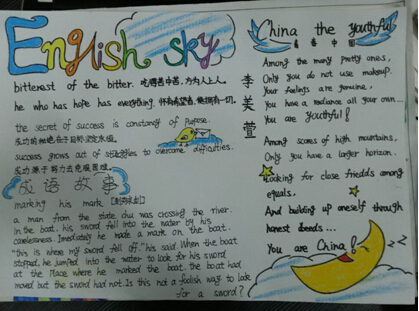 English sky
bitterest of the bitter. 吃得苦中苦,方为人上人。
he who has hope has everything. 怀有希望者,便拥有一切。
the secret of success is constancy of purpose.
成功的秘诀在于目标坚定永恒。
success grows out of struggles to overcome difficulties.
成功源于努力去克服困难。
成语故事
marking his mark [刻舟求剑]
a man from the state chu was crossing the river.
In the boat, his sword fell into the water by his
carelessness. Imediately he made a mark on the boat.
"this is where my sword fell off." his said. When the boat
stopped, he jumped into the water to look for his sword
at the place where he marked the boat. the boat had
moved but the sword had not Is this not a foolish way to look
for a sword?
China the youthful
青春中国
李美萱
Among the many pretty ones,
Only you do not use makeup.
Your feelings are genuine,
You have a radiance all your own...
You are youthful!
Among scores of high mountains,
Only you have a larger horizon.
Looking for close friedds among
equals.
And building up oneself through
honest deeds...
You are China!